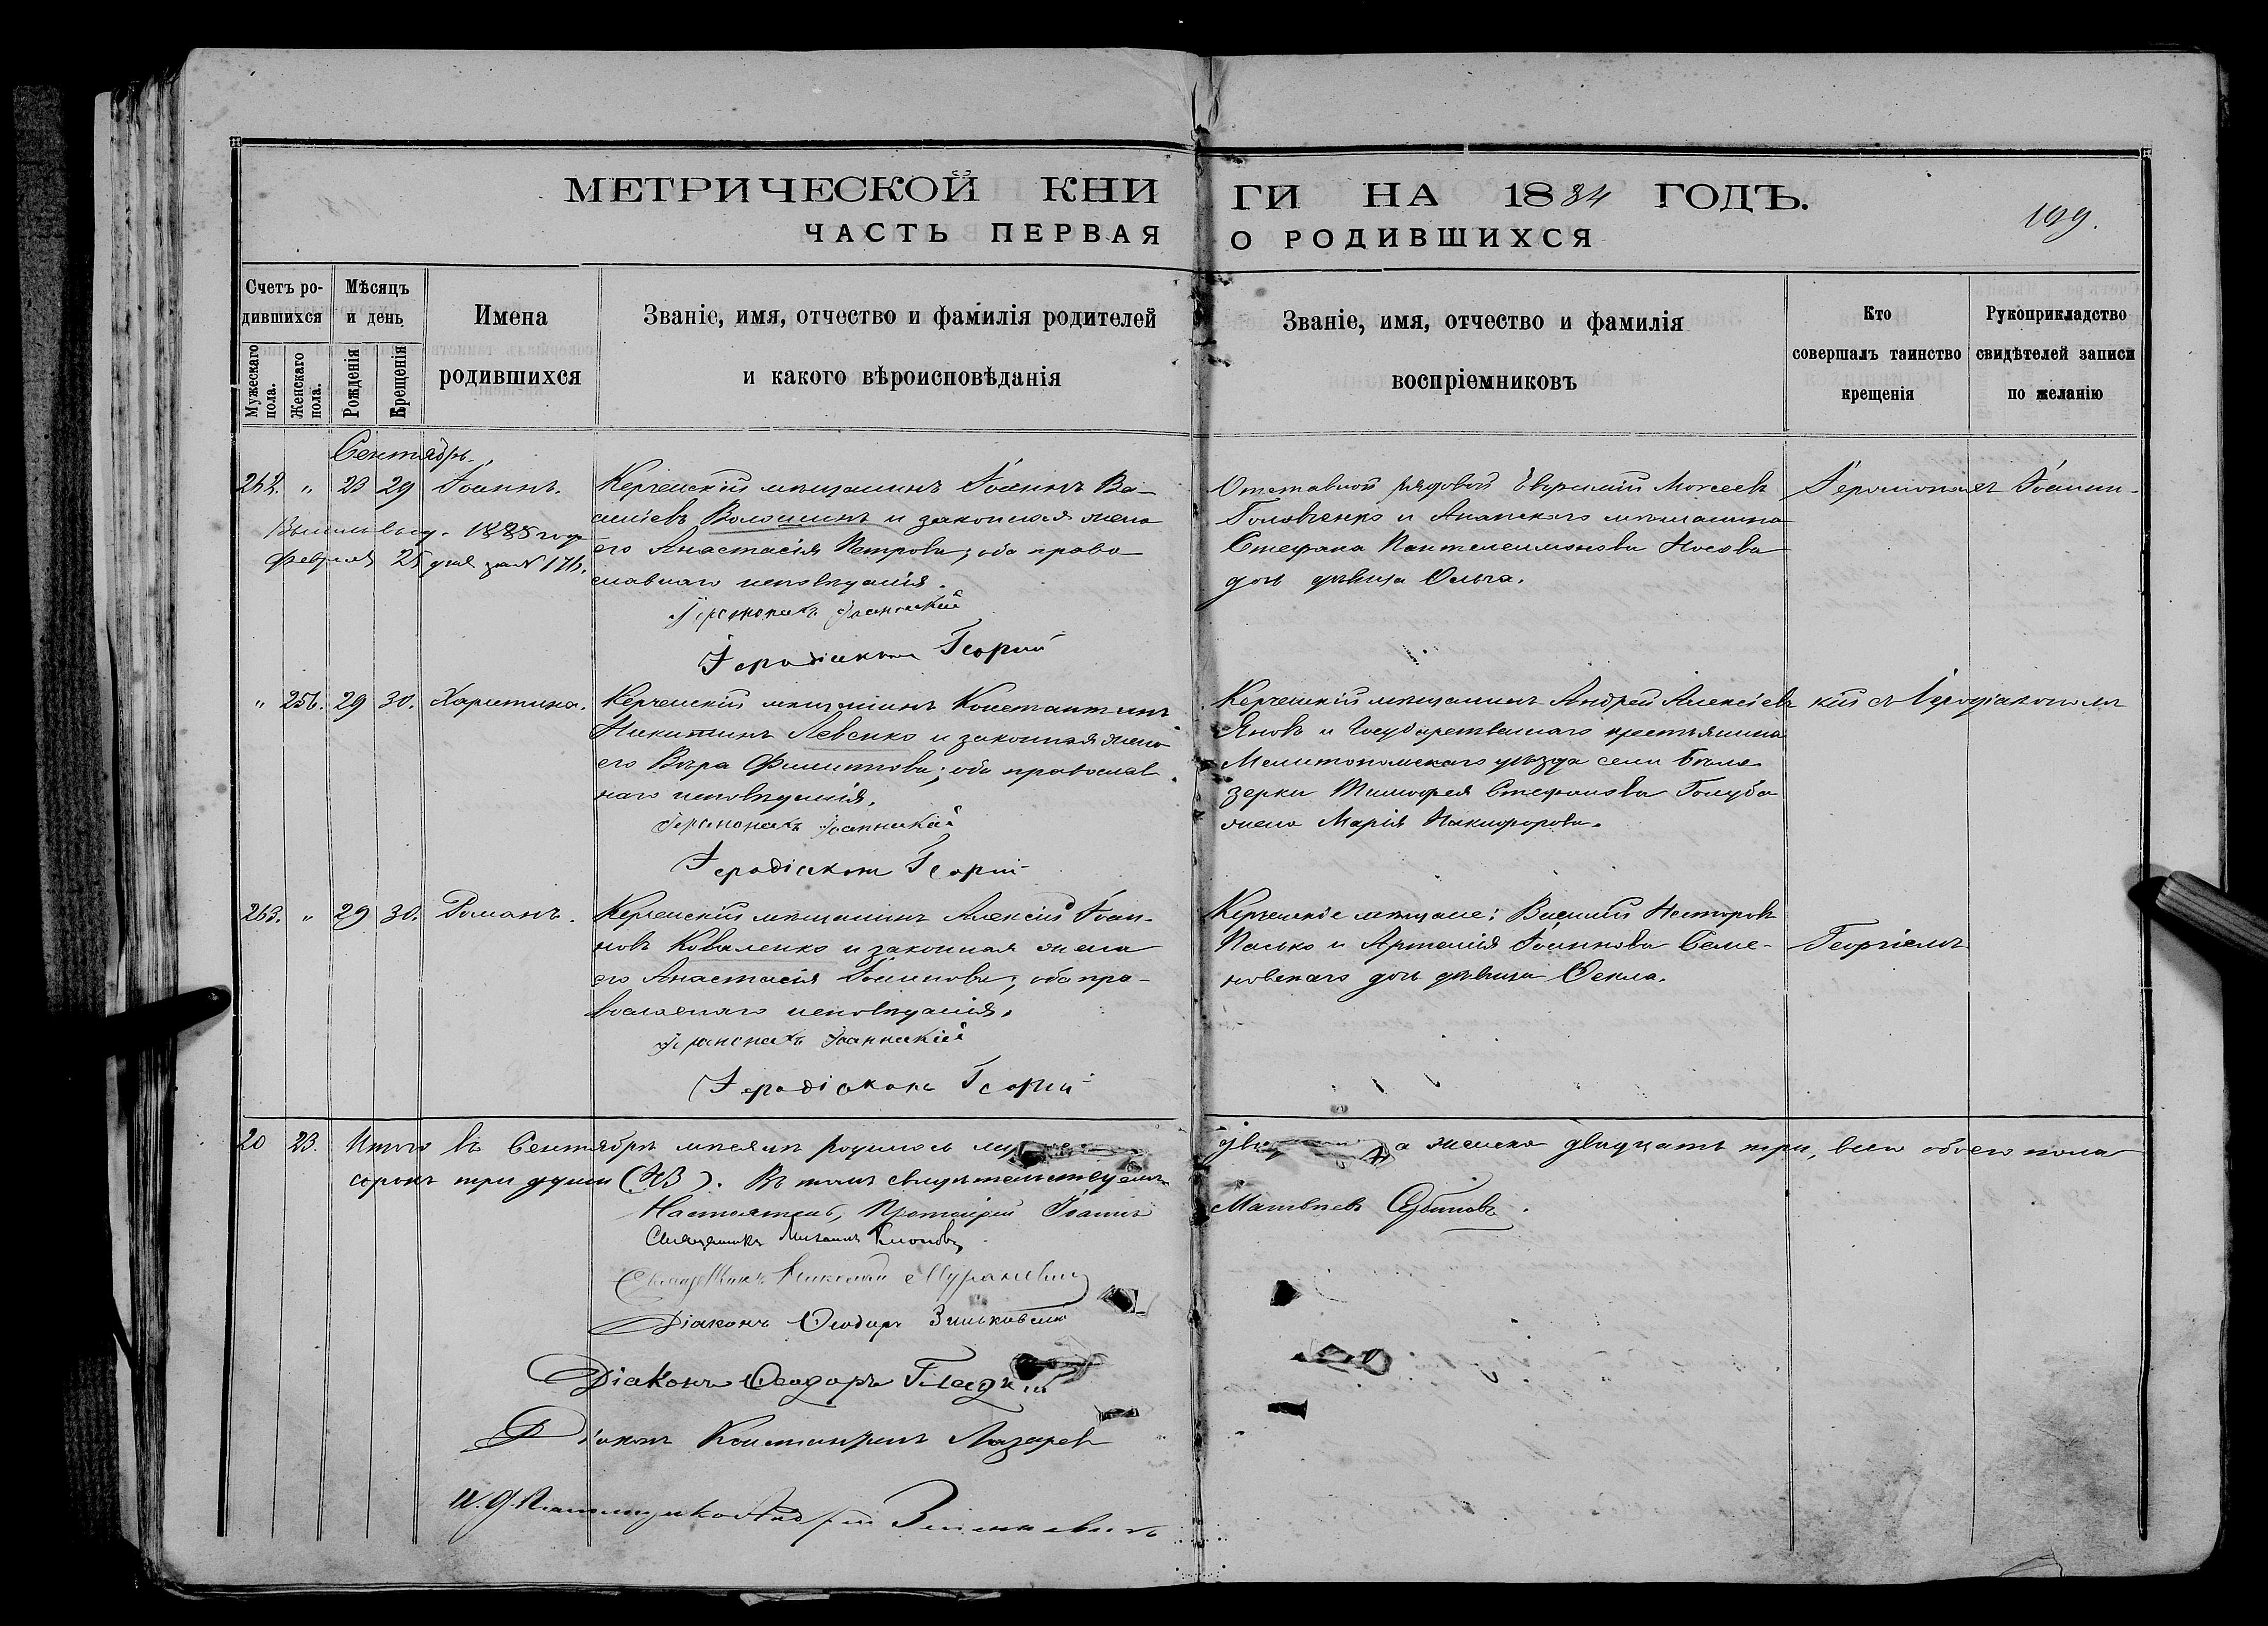 МЕТРИЧЕСКОЙ КНИ
ГИ НА 1884 ГОДЪ.
199.
ЧАСТЬ ПЕРВАЯ
О РОДИВШИХСЯ
Счетъ ро-
дившихся
Мѣсяцъ
и день
Мужескаго
пола.
Женскаго
пола.
Рожденія
Крещенія
Имена
родившихся
Званіе, имя, отчество и фамилія родителей
и какого вѣроисповѣданія
Званіе, имя, отчество и фамилія
воспріемниковъ
Кто
совершалъ таинство
крещенія
Рукоприкладство
свидѣтелей записи
по желанію
Сентябрь.
262. " 23 29 Іоаннъ.
1885 года
Февраля 25 дня за №
Керченскій мѣщанинъ Іоаннъ Ва-
силіевъ Волошинъ и законная жена
его Анастасія Петрова; оба право-
славнаго исповѣданія.
Іеромонахъ Іоанникій
Іеродіаконъ Георгій
Отставной рядовой Евфимій Моисеевъ
Головченко и Анапскаго мѣщанина
Стефана Пантелеимонова Носова
дочь дѣвица Ольга.
Іеромонахъ Іоанни-
" 256. 29 30. Харитина.
Керченскій мѣщанинъ Константинъ
Никитинъ Левенко и законная жена
его Вѣра Филиппова; оба православ-
наго исповѣданія.
Іеромонахъ Іоанникій
Іеродіаконъ Георгій
Керченскій мѣщанинъ Андрей Алексіевъ
Яновъ и Государственнаго крестьянина
Мелитопольскаго уѣзда села Бѣло-
зерки Тимофея Стефанова Голуба
жена Марія Никифорова.
кій съ Іеродіакономъ
263. " 29 30. Романъ.
Керченскій мѣщанинъ Алексій Іоан-
новъ Коваленко и законная жена
его Анастасія Іоаннова; оба пра-
вославнаго исповѣданія.
Іеромонахъ Іоанникій
Іеродіаконъ Георгій
Керченскіе мѣщане: Василій Несторовъ
Пасько и Артемія Іоаннова Семе-
новскаго дочь дѣвица Ѳекла.
Георгіемъ
20 23. Итого въ Сентябрѣ мѣсяцѣ родилось
а женска двадцать три, всего обоего пола
сорокъ три души (43). Въ томъ свидѣтельствуемъ
Настоятель, Протоіерей Іоаннъ
Матвѣевъ Сербиновъ.
Священникъ Михаилъ
Священникъ Николай
Діаконъ Ѳеодоръ Зиньковскій
Діаконъ Ѳеодоръ Гладкій
Діаконъ Константинъ Лазаревъ
И. д. Псаломщика Андрей